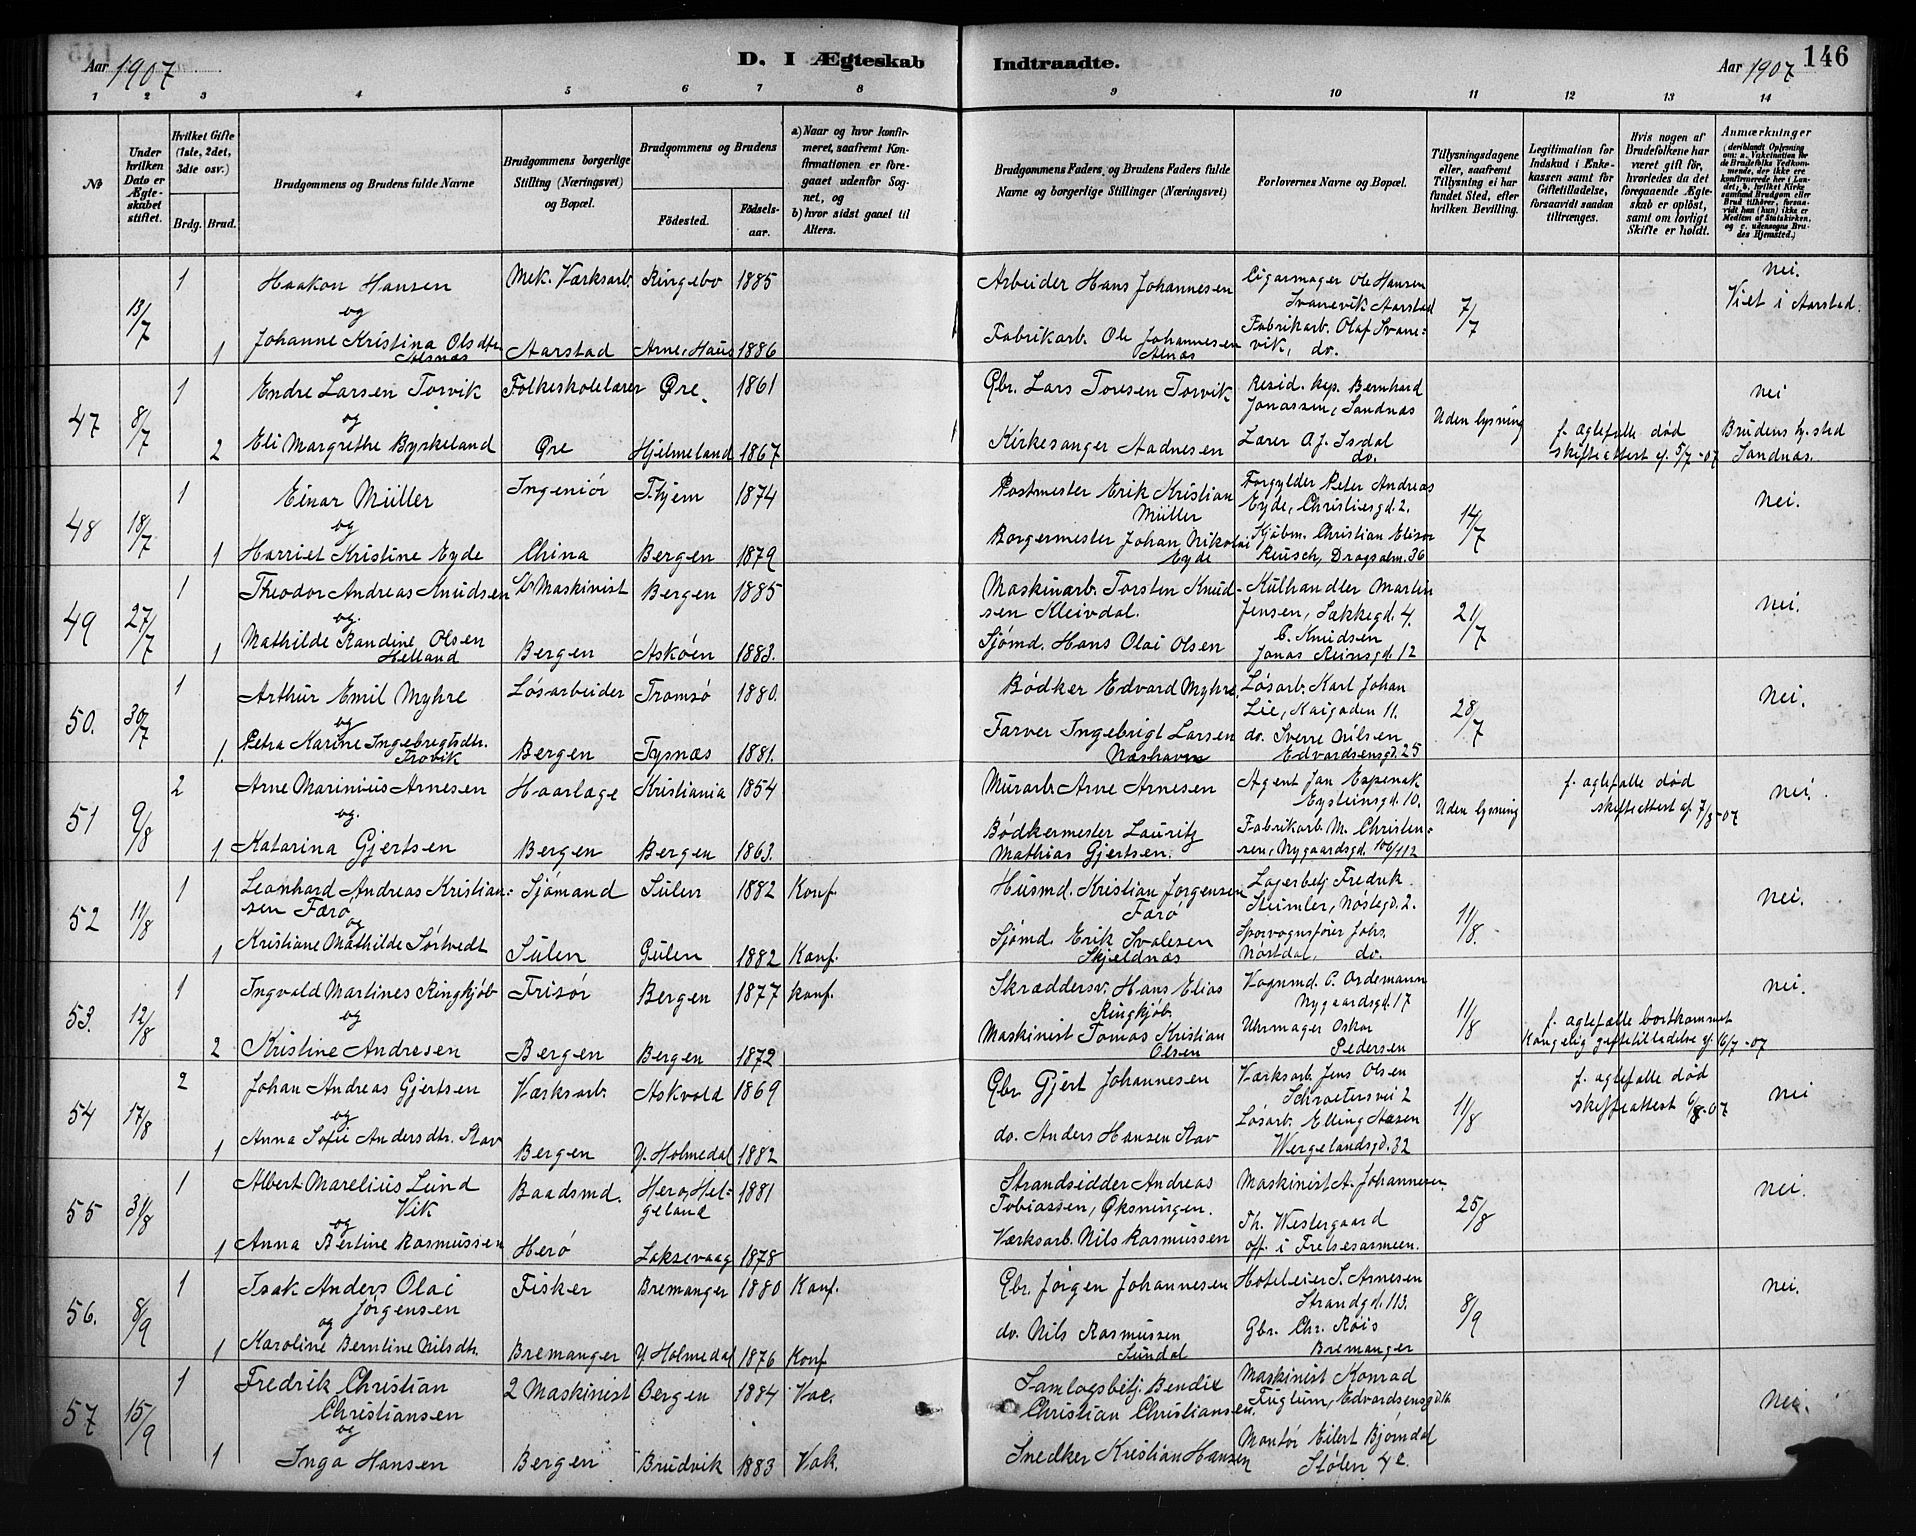 Aar 1907
D. I Ægteskab
Indtraadte.
Aar 1907
146
1 2 3 4 5 6 7 8 9 10 11 12 13 14
№
Under hvilken Dato er Ægteskabet stiftet.
Hvilket Gifte (1ste, 2det, 3die osv.)
Brdg. Brud.
Brudgommens og Brudens fulde Navne
Brudgommens borgerlige Stilling (Næringsvei) og Bopæl.
Brudgommens og Brudens
Födested.
Födselsaar.
a) Naar og hvor konfirmeret, saafremt Konfirmationen er foregaaet udenfor Sognet, og
b) hvor sidst gaaet til Alters.
Brudgommens Faders og Brudens Faders fulde Navne og borgerlige Stillinger (Næringsvei)
Forlovernes Navne og Bopæl.
Tillysningsdagene eller, saafremt Tillysning ei har fundet Sted, efter hvilken Bevilling.
Legitimation for Indskud i Enkekassen samt for Giftetilladelse, forsaavidt saadan tiltrænges.
Hvis nogen af Brudefolkene har været gift för, hvorledes da det foregaaende Ægteskab er oplöst, samt om lovligt Skifte er holdt.
Anmærkninger (deriblandt Oplysning om: a. Vakcination for de Brudefolks Vedkommende, der ikke ere konfirmerede her i Landet; b. hvilket Kirkesamfund Brudgom eller Brud tilhörer, forsaavidt han (hun) ikke er Medlem af Statskirken, og c. udensogns Brudes Hjemsted.)
13/7 1 Haakon Hansen Mek. Værksarb. Ringebo 1885 Arbeider Hans Johannesen Cigarmager Ole Hansen Svanevik Aarstad 7/7 nei. Viet i Aarstad.
og
1 Johanne Kristina Olsdtr Alsnas Aarstad Arne, Haus 1886 Fabrikarb. Ole Johannesen Alnas Fabrikarb. Olaf Svanevik, do.
47 8/7 1 Endre Larsen Torvik Folkeskolelærer Øre 1861 Gbr. Lars Toresen Torvik Resid. kap. Bernhard Jonassen, Sandnas Uden lysning nei
og
2 Eli Margrethe Byrkeland Øre Hjelmeland 1867 Kirkesanger Aadnesen Lærer Aj. Isdal do. f. agtefælle død skifteattest af 5/7-07 Brudens hj.sted Sandnæs.
48 18/7 1 Einar Müller Ingeniør T.hjem 1874 Postmester Erik Kristian Müller Forgylder Peter Andreas Eyde, Christiesgd. 2. 14/7 nei.
og
1 Harriet Kristine Eyde China Bergen 1879 Borgermester Johan Nikolai Eyde Kjøbm. Christian Elisar Reusch, Dragsalm. 36
49 27/7 1 Theodor Andreas Knudsen Maskinist Bergen 1885 Maskinarb. Torsten Knudsen Kleivdal. Kulhandler Martin Jensen, Sakkegd. 4. 21/7 nei.
og.
1 Mathilde Randine Olsen Helland Bergen Askøen 1883. Sjømd. Hans Olai Olsen C. Knudsen Jonas Reinsgd. 12
50. 30/7 1 Arthur Emil Myhre Løsarbeider Tromsø 1880. Bødker Edvard Myhre. Løsarb. Karl Johan Lie, Kaigaden 11. 28/7 nei.
og
1. Petra Karine Ingebregtsdtr. Trovik Bergen Tysnæs 1881. Farver Ingebrigt Larsen Næshavn do. Sverre Nilsen Edvardsensgd. 25
51 9/8 2 Arne Marinius Arnesen Haarlage Kristiania 1854 Murarb. Arne Arnesen Agent Jan Espenak Eysteinsgd. 10. Uden lysning f. agtefælle død skifteattest af 7/3-07 nei.
og.
1 Katarina Gjertsen Bergen Bergen 1863. Bødkermester Lauritz Mathias Gjertsen. Fabrikarb. M. Christensen, Nygaardsgd. 106/112
52 11/8 1 Leonhard Andreas Kristiansen Færø Sjömand Sulen 1882 Konf. Husmd. Kristian Jorgensen Færö Lagerbetj. Fredrik Steimler, Nöstegd. 2. 11/8. nei.
og
1 Kristiane Mathilde Sörtvedt Sulen Gulen 1882 Konf. Sjömd. Erik Svalesen Skjeldnæs Sporvognsfører Johs. Nöstdal, do.
53. 12/8 1 Ingvald Martines Ringkjöb Frisör Bergen 1877 Konf. Skræddersv. Hans Elias Ringkjöb. Vognmd. C. Ordemann Nygaardsgd. 17 11/8 nei.
og
2 Kristine Andresen Bergen Bergen 1872 Maskinist Tomas Kristian Olsen Uhrmager Oskar Pedersen f. agtefælle bortkommet Kongelig giftetilladelse af 16/7-07
54 17/8 2 Johan Andreas Gjertsen Værksarb. Askvold 1869 Gbr. Gjert Johannesen Værksarb. Jens Olsen Schroetersvei 2 11/8 f. agtefælle død skifteattest 6/8-07 nei
og
1 Anna Sofie Andersdtr. Stav Bergen Y. Holmedal 1882 do. Anders Hansen Stav Løsarb. Elling Aasen Wergelandsgd. 32
55 31/8 1 Albert Marelius Lund Vik Baadsmd. Herø, Helgeland 1881 Strandsidder Andreas Tobiassen, Øksningen. Maskinist A. Johannesen. 25/8 nei.
og
1 Anna Bertine Rasmussen Herø Laksevaag 1878 Værksarb. Nils Rasmussen Th. Westergaard off. i Frelsesarmeen.
56. 8/9 1 Isak Anders Olai Jörgensen Fisker Bremanger 1880 Konf. Gbr. Jörgen Johannesen Hoteleier S. Arnesen Strandgd. 113. 8/9 nei.
og
1 Karoline Berntine Nilsdtr. Bremanger Y. Holmedal 1876 Konf do. Nils Rasmussen Sundal Gbr. Chr. Röis Bremanger
57 15/9 1 Fredrik Christian Christiansen 2 Maskinist Bergen 1884 Vac. Samlagsbetj. Bendix Christian Christiansen. Maskinist Konrad Fuglum, Edvardsensgd. nei.
og
1 Inga Hansen Bergen Brudvik 1883 Vak. Snedker Kristian Hansen Montör Eilert Bjørndal Stølen 4c.